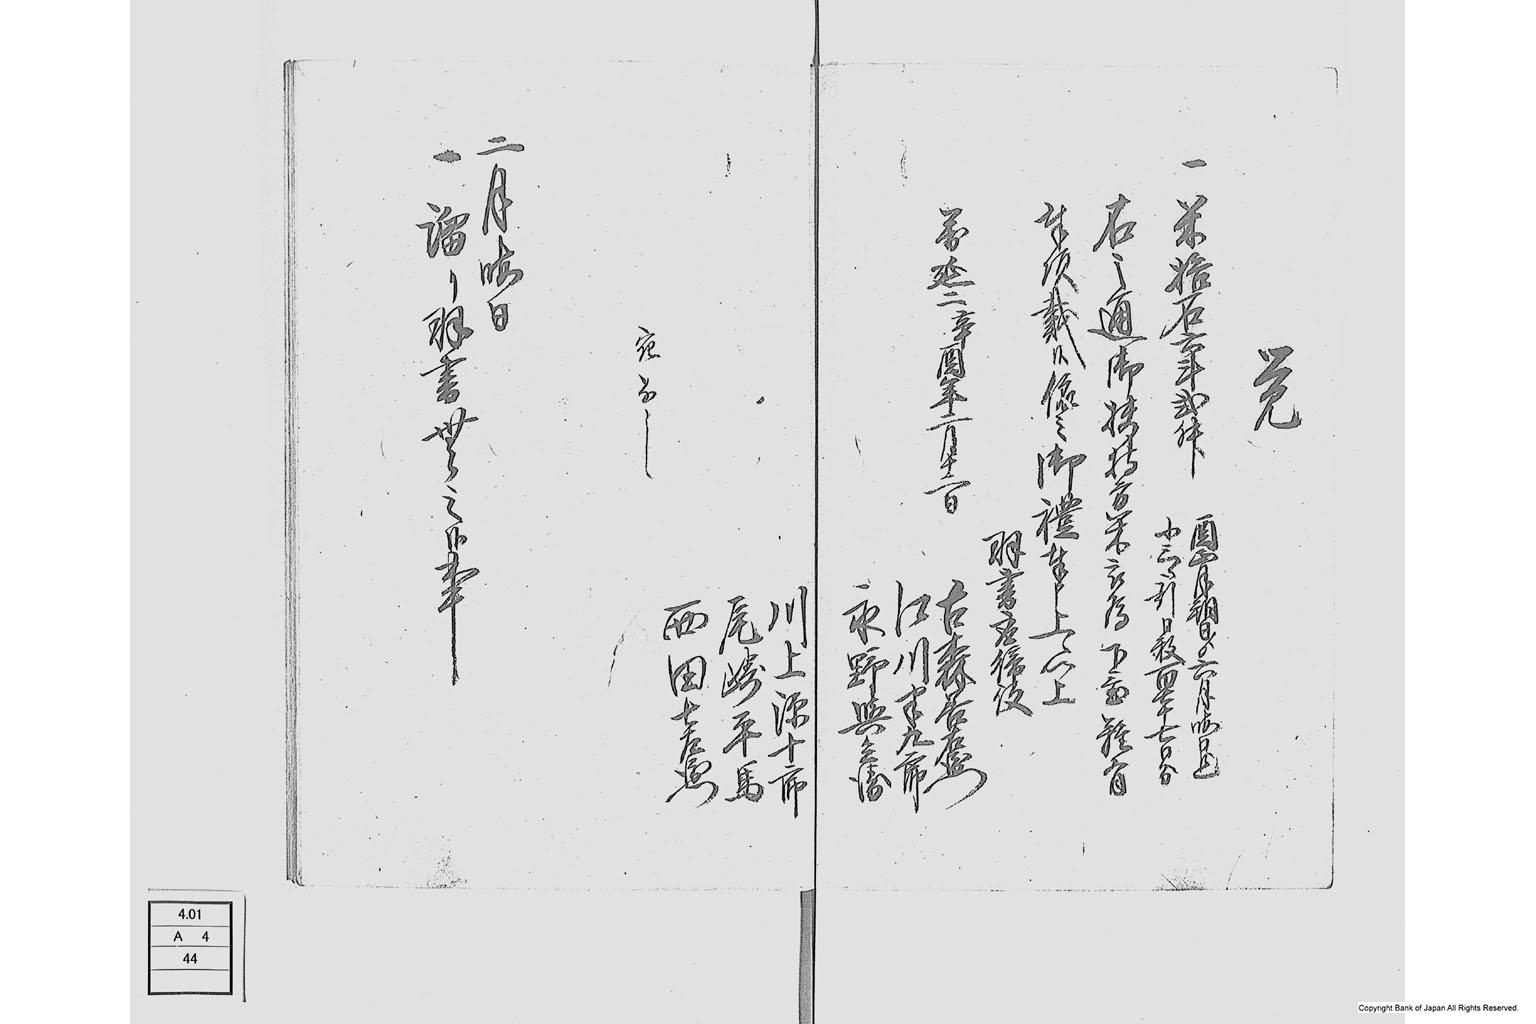 覚
一米拾石六斗弐升
酉正月朔日ゟ六月晦日迄
小三ヶ月引日数百四十七日分
右之通御扶持方米被為下置難有
奉頂戴候依之御禮奉申上候以上
羽書
萬延二辛酉年二月十六日
古森善右衛門
江川半九郎
永野與三右衛門
川上源十郎
尾崎平馬
西田七左衛門
宛なし
二月晦日
一溜り羽書無之候事
4.01
A 4
44
Copyright Bank of Japan All Rights Reserved.